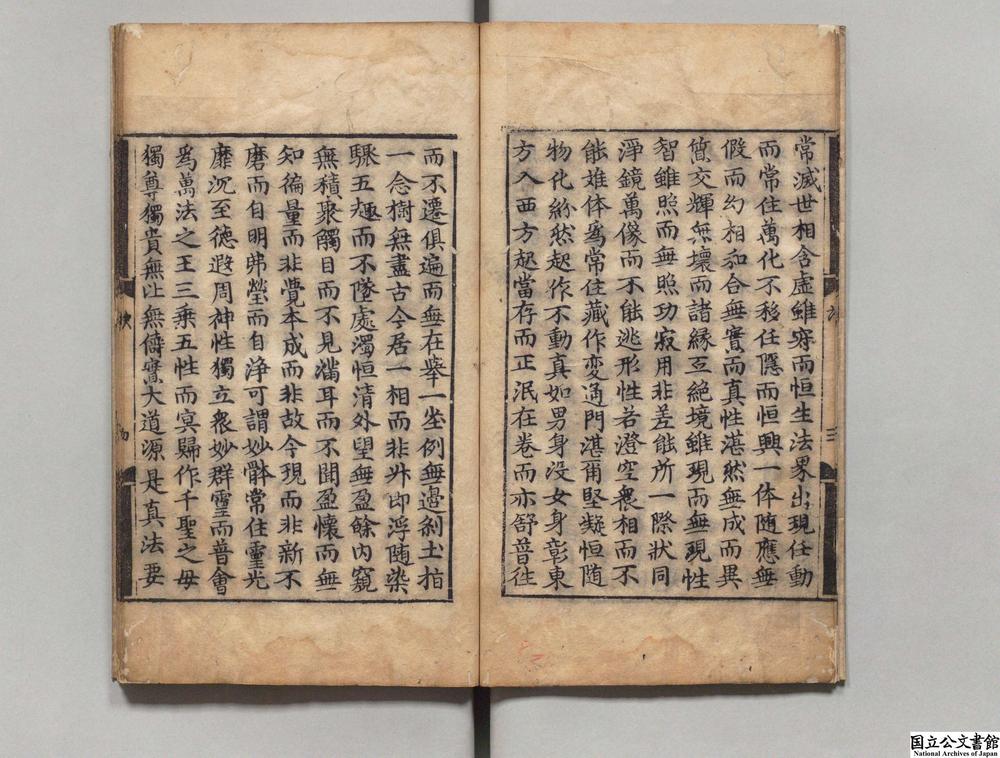 常滅世相含虛雖寂而恒生法界出現任動
而常住萬化不移任隱而恒興一体随應無
假而幻相和合無實而真性湛然無成而異
質交輝無壞而諸緣互絕境雖現而無現性
智雖照而無照功寂用非差能所一際狀同
淨鏡萬像而不能逃形性若澄空衆相而不
能妵体爲常住藏作変通門湛爾堅凝恒随
物化紛然起作不動真如男身没女身彰東
方入西方起當存而正泯在卷而亦舒普徃
而不遷俱遍而無在舉一坐例無邊剎土指
一念樹無盡古今居一相而非升即浮随染
驟五趣而不墜處濁恒清外望無盈餘内窺
無積聚觸目而不見滿耳而不聞盈懷而無
知徧量而非覺本成而非故今現而非新不
磨而自明弗瑩而自淨可謂妙體常住靈光
靡沉至德遐周神性獨立衆妙群靈而普會
爲萬法之王三乗五性而冥歸作千聖之母
獨尊獨貴無比無儔實大道源是真法要
国立公文書館
National Archives of Japan